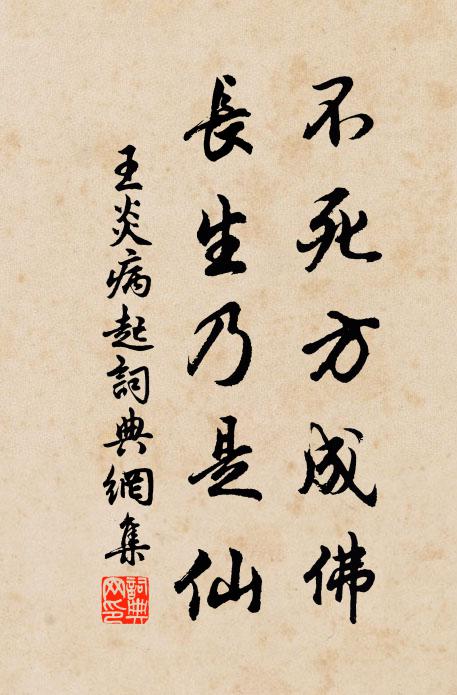 不死方成佛
長生乃是仙
王炎病起詞典網集
詞典網印